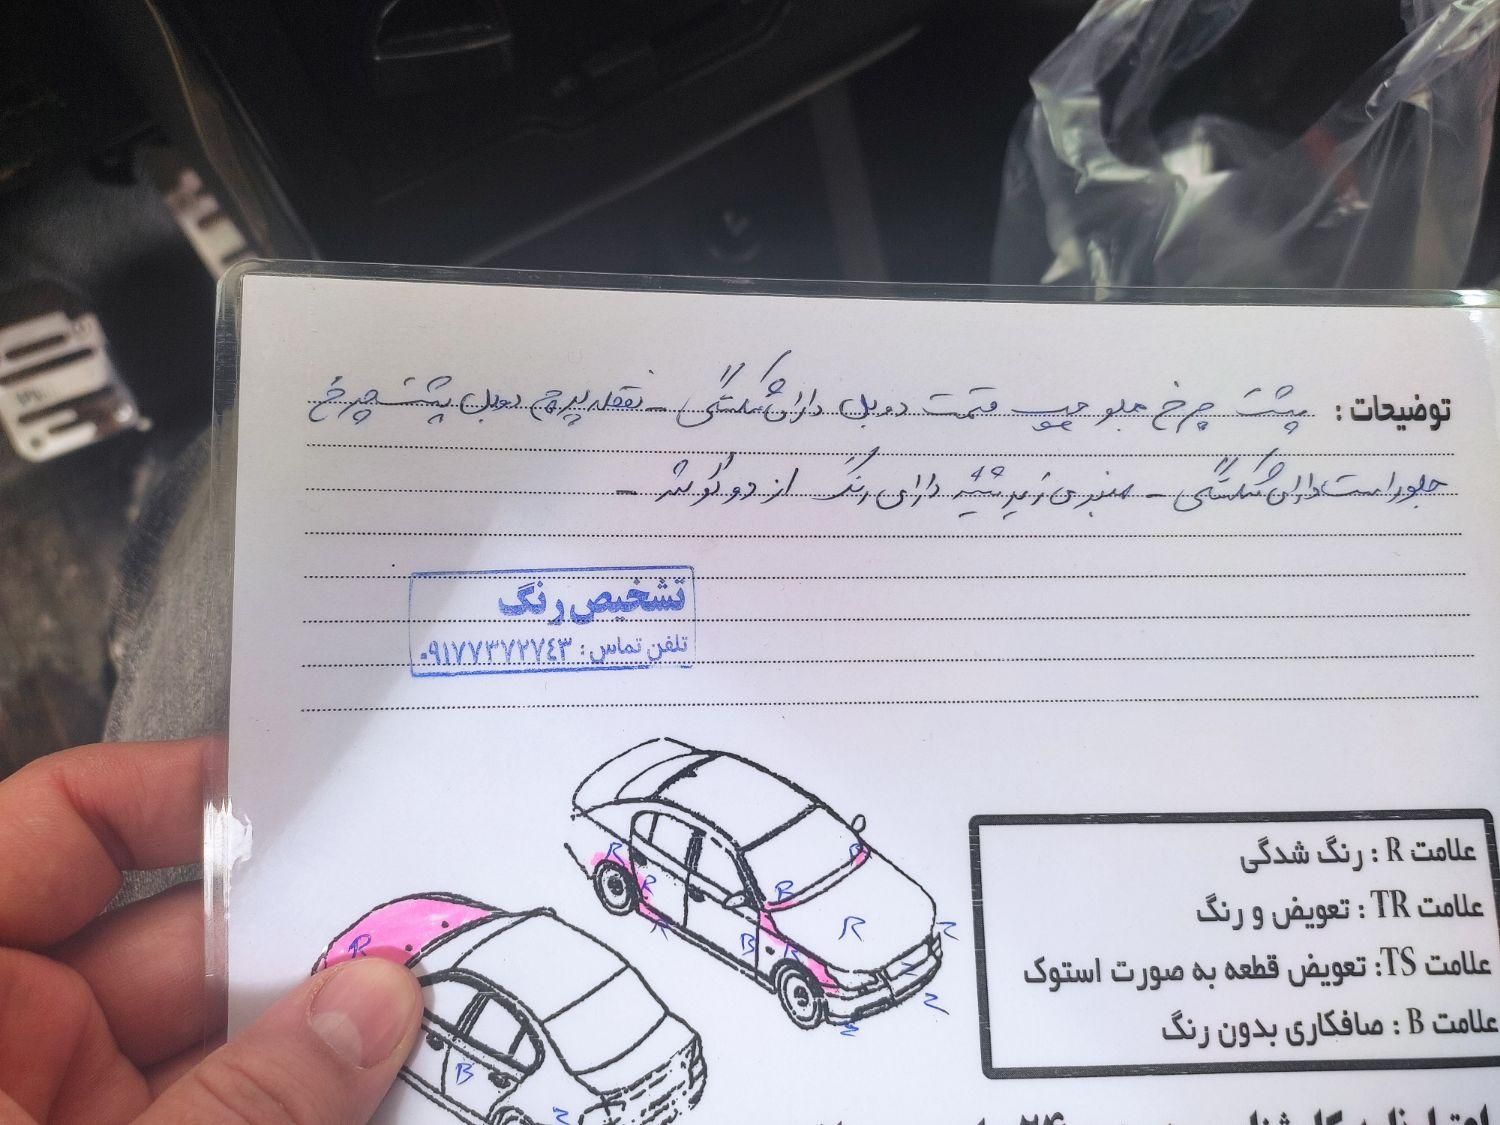 توضیحات : پشت چرخ جلو چپ قسمت دوبل دارای شکستگی - نقطه پرچ دوبل پشت چرخ
جلو راست دارای شکستگی - سینی زیر شیشه دارای رنگ از دو گوشه -
تشخیص رنگ
تلفن تماس : ۰۹۱۷۷۳۷۲۷۴۳
علامت R : رنگ شدگی
علامت TR : تعویض و رنگ
علامت TS: تعویض قطعه به صورت استوک
علامت B : صافکاری بدون رنگ
R
R
R
B
B
B
R
R
R
B